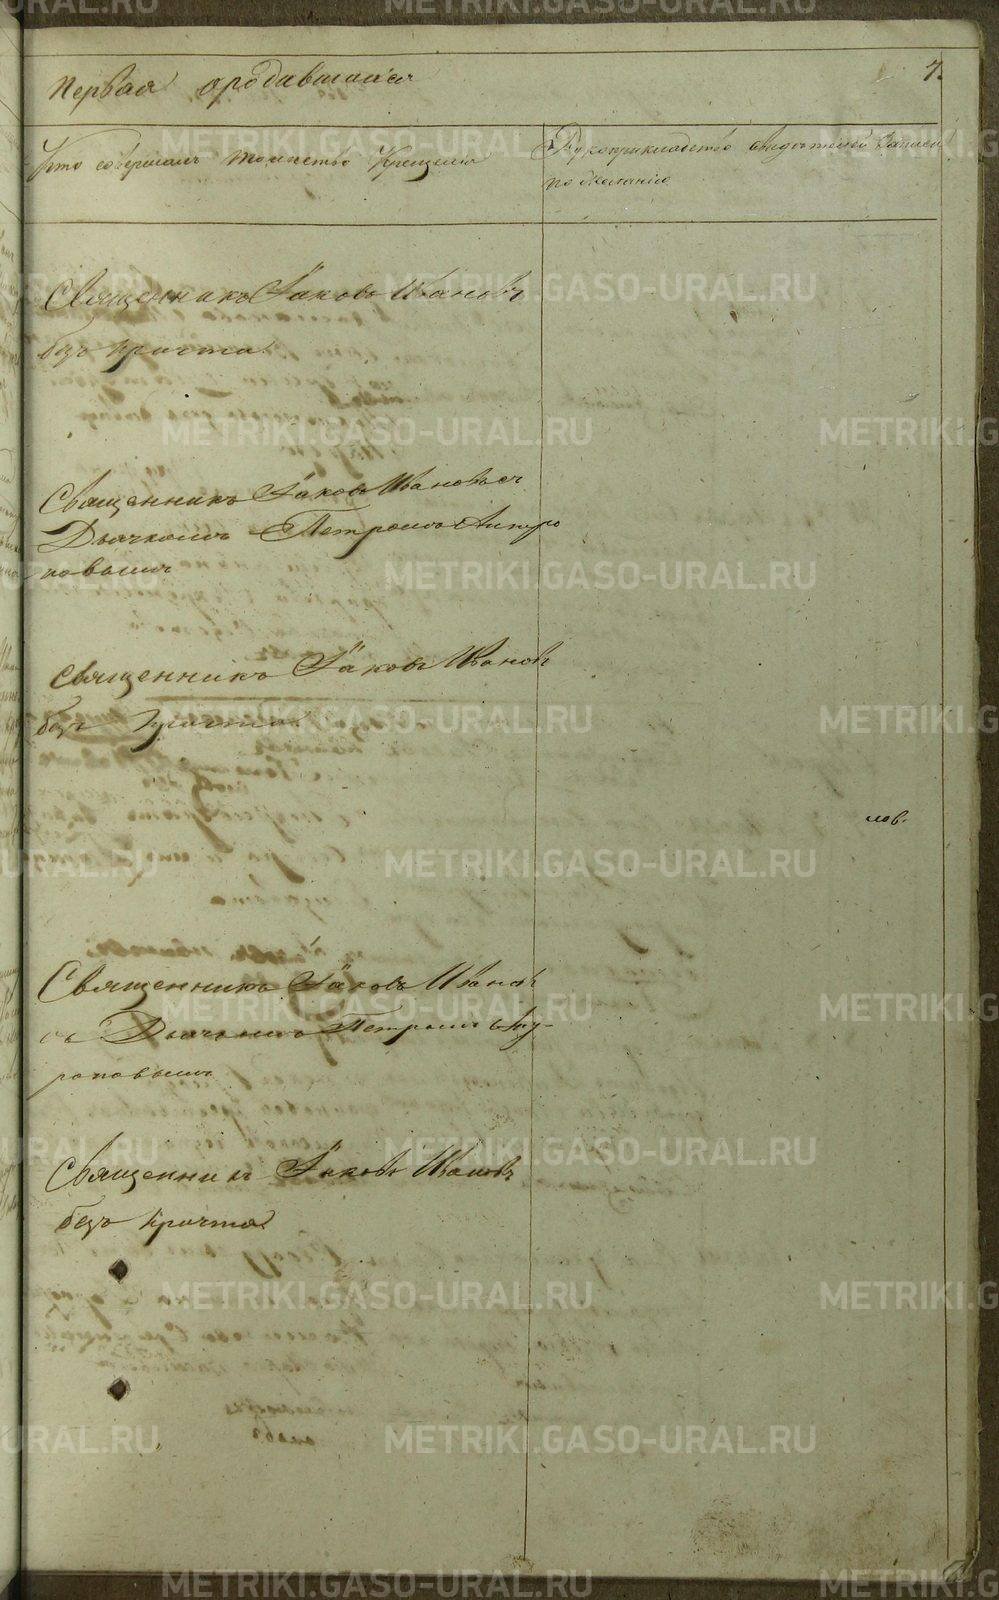 Первая ородившихся
7.
Кто совершалъ таинство Крещенія
Рукоприкладство свидѣтелей записи
по желанію
Священникъ Іаковъ Ивановъ
безъ причта.
Священникъ Іаковъ Ивановъ съ
Дьячкомъ Петромъ Андро
новымъ
Священникъ Іаковъ Ивановъ
безъ Причта.
лов.
Священникъ Іаковъ Ивановъ
съ Дьячкомъ Петромъ
Священникъ Іаковъ Ивановъ
безъ причта
METRIKI.GASO-URAL.RU